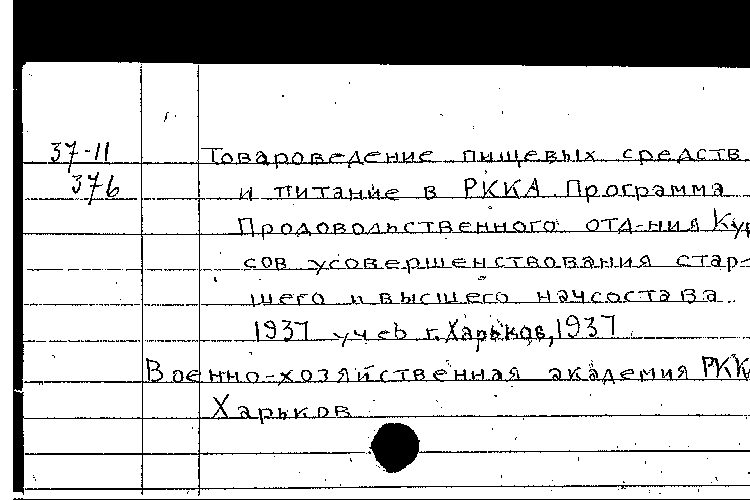 37-11 Товароведение пищевых средств
376 и питание в РККА. Программа
Продовольственного отд-ния Кур
сов усовершенствования стар-
шего и высшего начсостава.
1937 учеб г. Харьков, 1937
Военно-хозяйственная академия РКК
Харьков